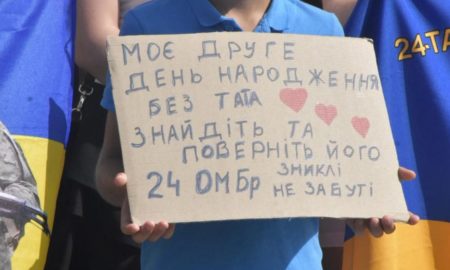 МОЄ ДРУГЕ
ДЕНЬ НАРОДЖЕННЯ
БЕЗ ТАТА
ЗНАЙДІТЬ ТА
ПОВЕРНІТЬ ЙОГО
24 ОМБр ЗНИКЛІ
НЕ ЗАБУТІ
24TA